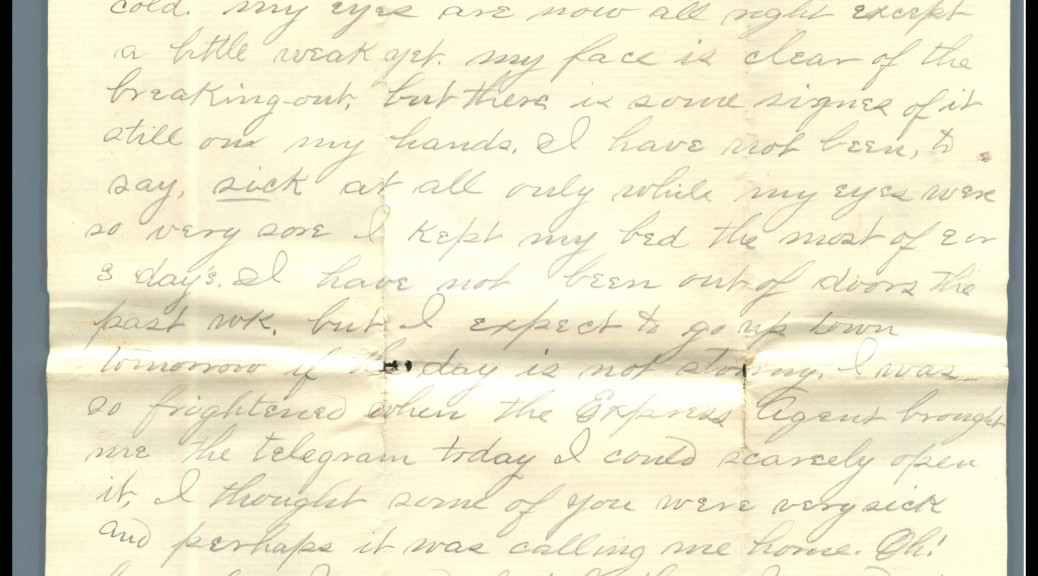 cold. my eyes are now all right except
a little weak yet. my face is clear of the
breaking-out, but there is some signes of it
still on my hands. I have not been, to
say, sick at all only while my eyes were
so very sore I kept my bed the most of 2 or
3 days. I have not been out of doors the
past wk. but I expect to go up town
tomorrow if day is not stormy. I was
so frightened when the Express Agent brought
me the telegram today I could scarcely open
it, I thought some of you were very sick
and perhaps it was calling me home. Oh!